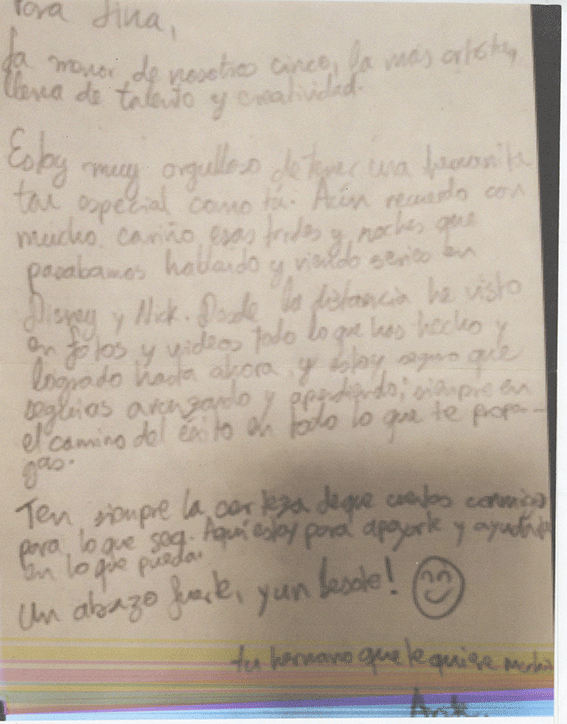 Para
La menor de nosotros cinco, la más artista,
llena de talento y creatividad.
Estoy muy orgulloso de tener una hermanita
tan especial como tú. Aún recuerdo con
mucho cariño esas tardes y noches que
pasabamos hablando y viendo series en
Disney y Nick. Desde la distancia he visto
en fotos y videos todo lo que has hecho y
logrado hasta ahora, y estoy seguro que
seguiras avanzando y aprendiendo; siempre en
el camino del éxito en todo lo que te propon-
gas.
Ten siempre la certeza de que cuentas conmigo
para lo que sea. Aquí estoy para apoyarte y ayudarte
en lo que pueda.
Un abrazo fuerte, y un besote!
tu hermano que te quiere mucho